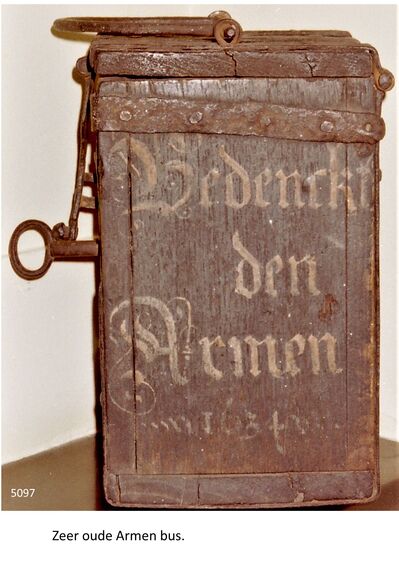 Bedenckt
den
Armen
1634
5097
Zeer oude Armen bus.